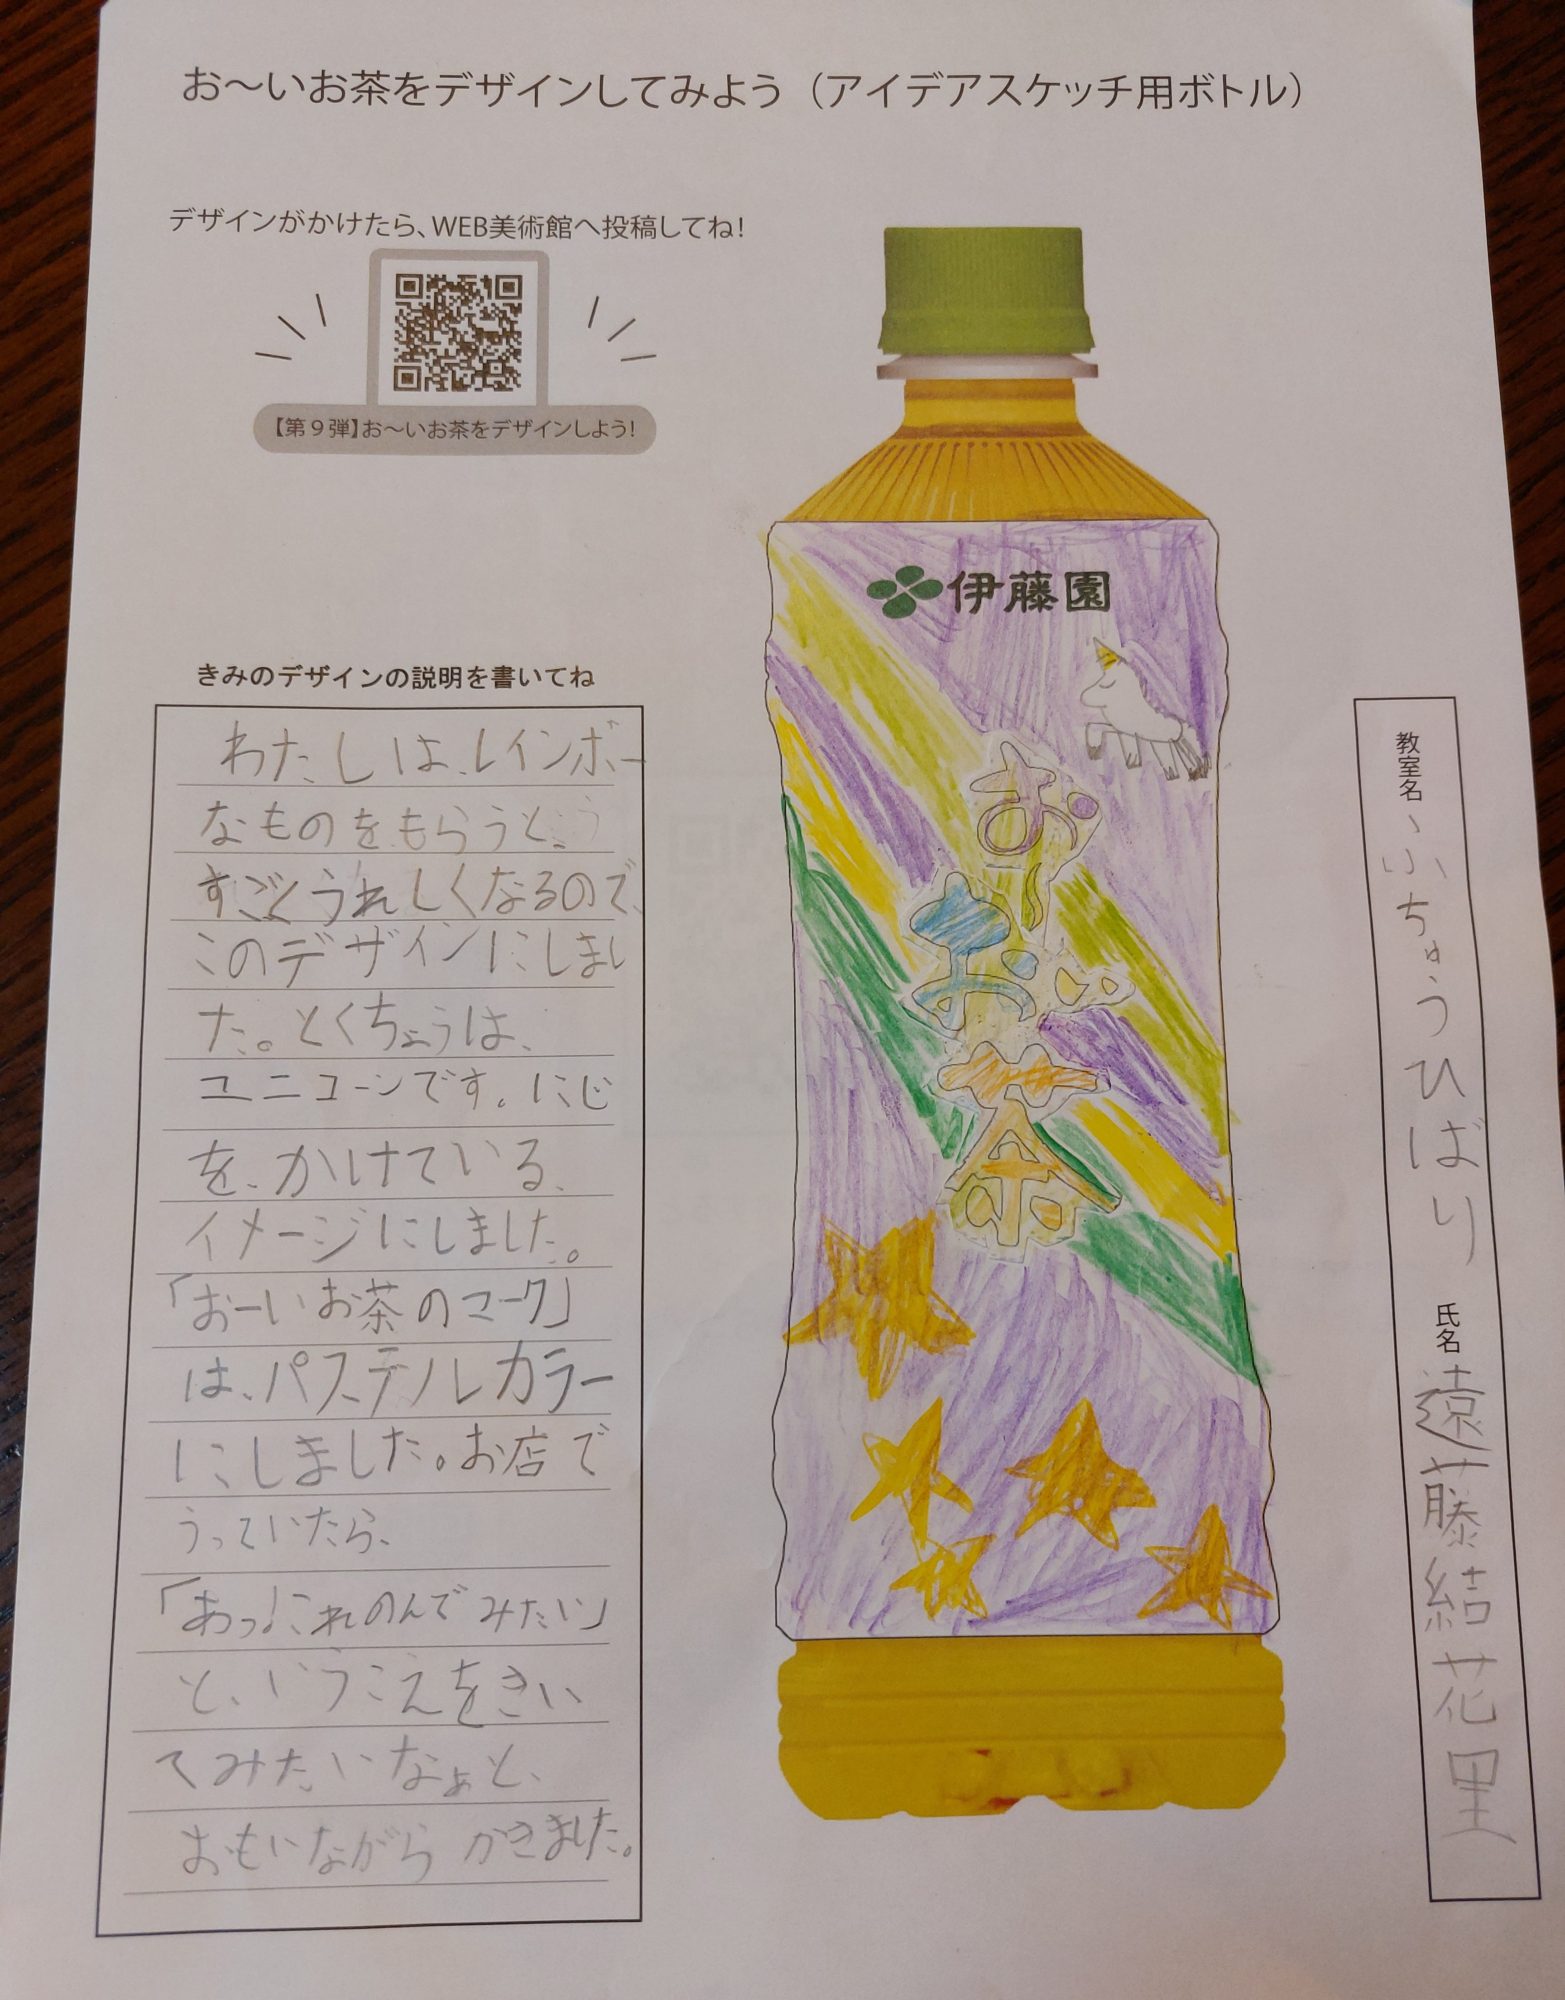 お〜いお茶をデザインしてみよう（アイデアスケッチ用ボトル）
デザインがかけたら、WEB美術館へ投稿してね！
【第９弾】お〜いお茶をデザインしよう！
伊藤園
お〜い
お
茶
きみのデザインの説明を書いてね
わたしは、レインボー
なものをもらうと、
すごくうれしくなるので、
このデザインにしまし
た。とくちょうは、
ユニコーンです。にじ
を、かけている、
イメージにしました。
「おーいお茶のマーク」
は、パステルカラー
にしました。お店で
うっていたら、
「あっ！これのんでみたい」
と、いうこえをきい
てみたいなぁと、
おもいながらかきました。
教室名、小ちゅうひばり
氏名 遠藤結花里